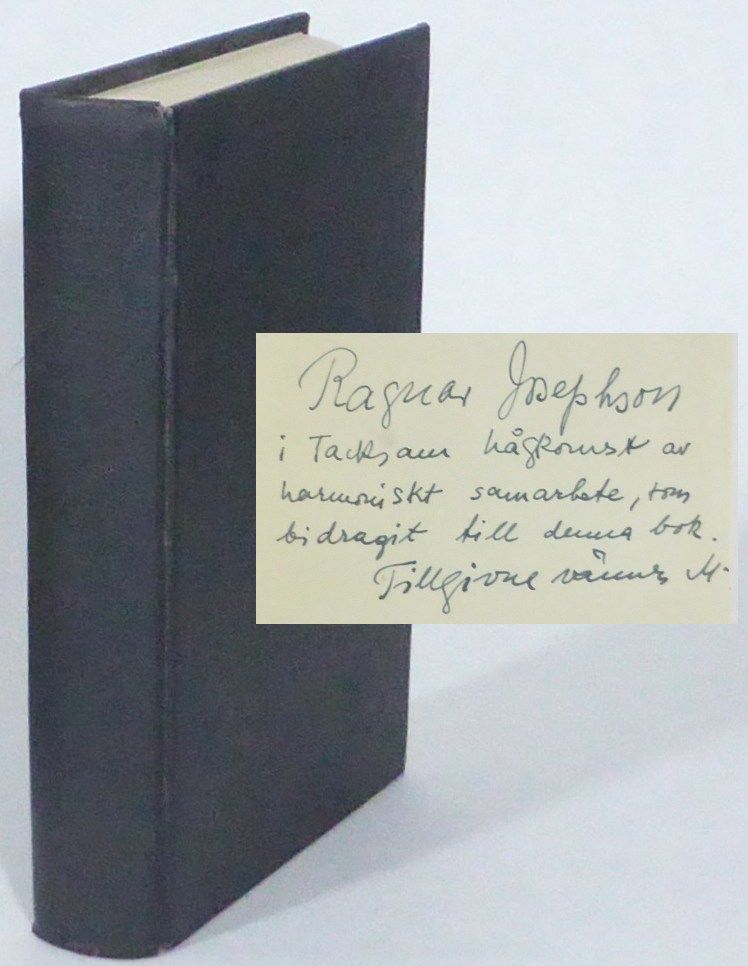 Ragnar Josephson
i Tacksam hågkomst av
harmoniskt samarbete, som
bidragit till denna bok.
Tillgivne vännen M.